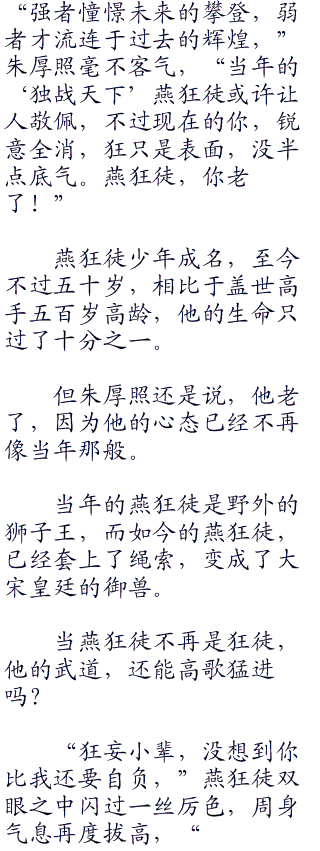 “强者憧憬未来的攀登，弱
者才流连于过去的辉煌，”
朱厚照毫不客气，“当年的
‘独战天下’燕狂徒或许让
人敬佩，不过现在的你，锐
意全消，狂只是表面，没半
点底气。燕狂徒，你老
了！”
燕狂徒少年成名，至今
不过五十岁，相比于盖世高
手五百岁高龄，他的生命只
过了十分之一。
但朱厚照还是说，他老
了，因为他的心态已经不再
像当年那般。
当年的燕狂徒是野外的
狮子王，而如今的燕狂徒，
已经套上了绳索，变成了大
宋皇廷的御兽。
当燕狂徒不再是狂徒，
他的武道，还能高歌猛进
吗？
“狂妄小辈，没想到你
比我还要自负，”燕狂徒双
眼之中闪过一丝厉色，周身
气息再度拔高，“